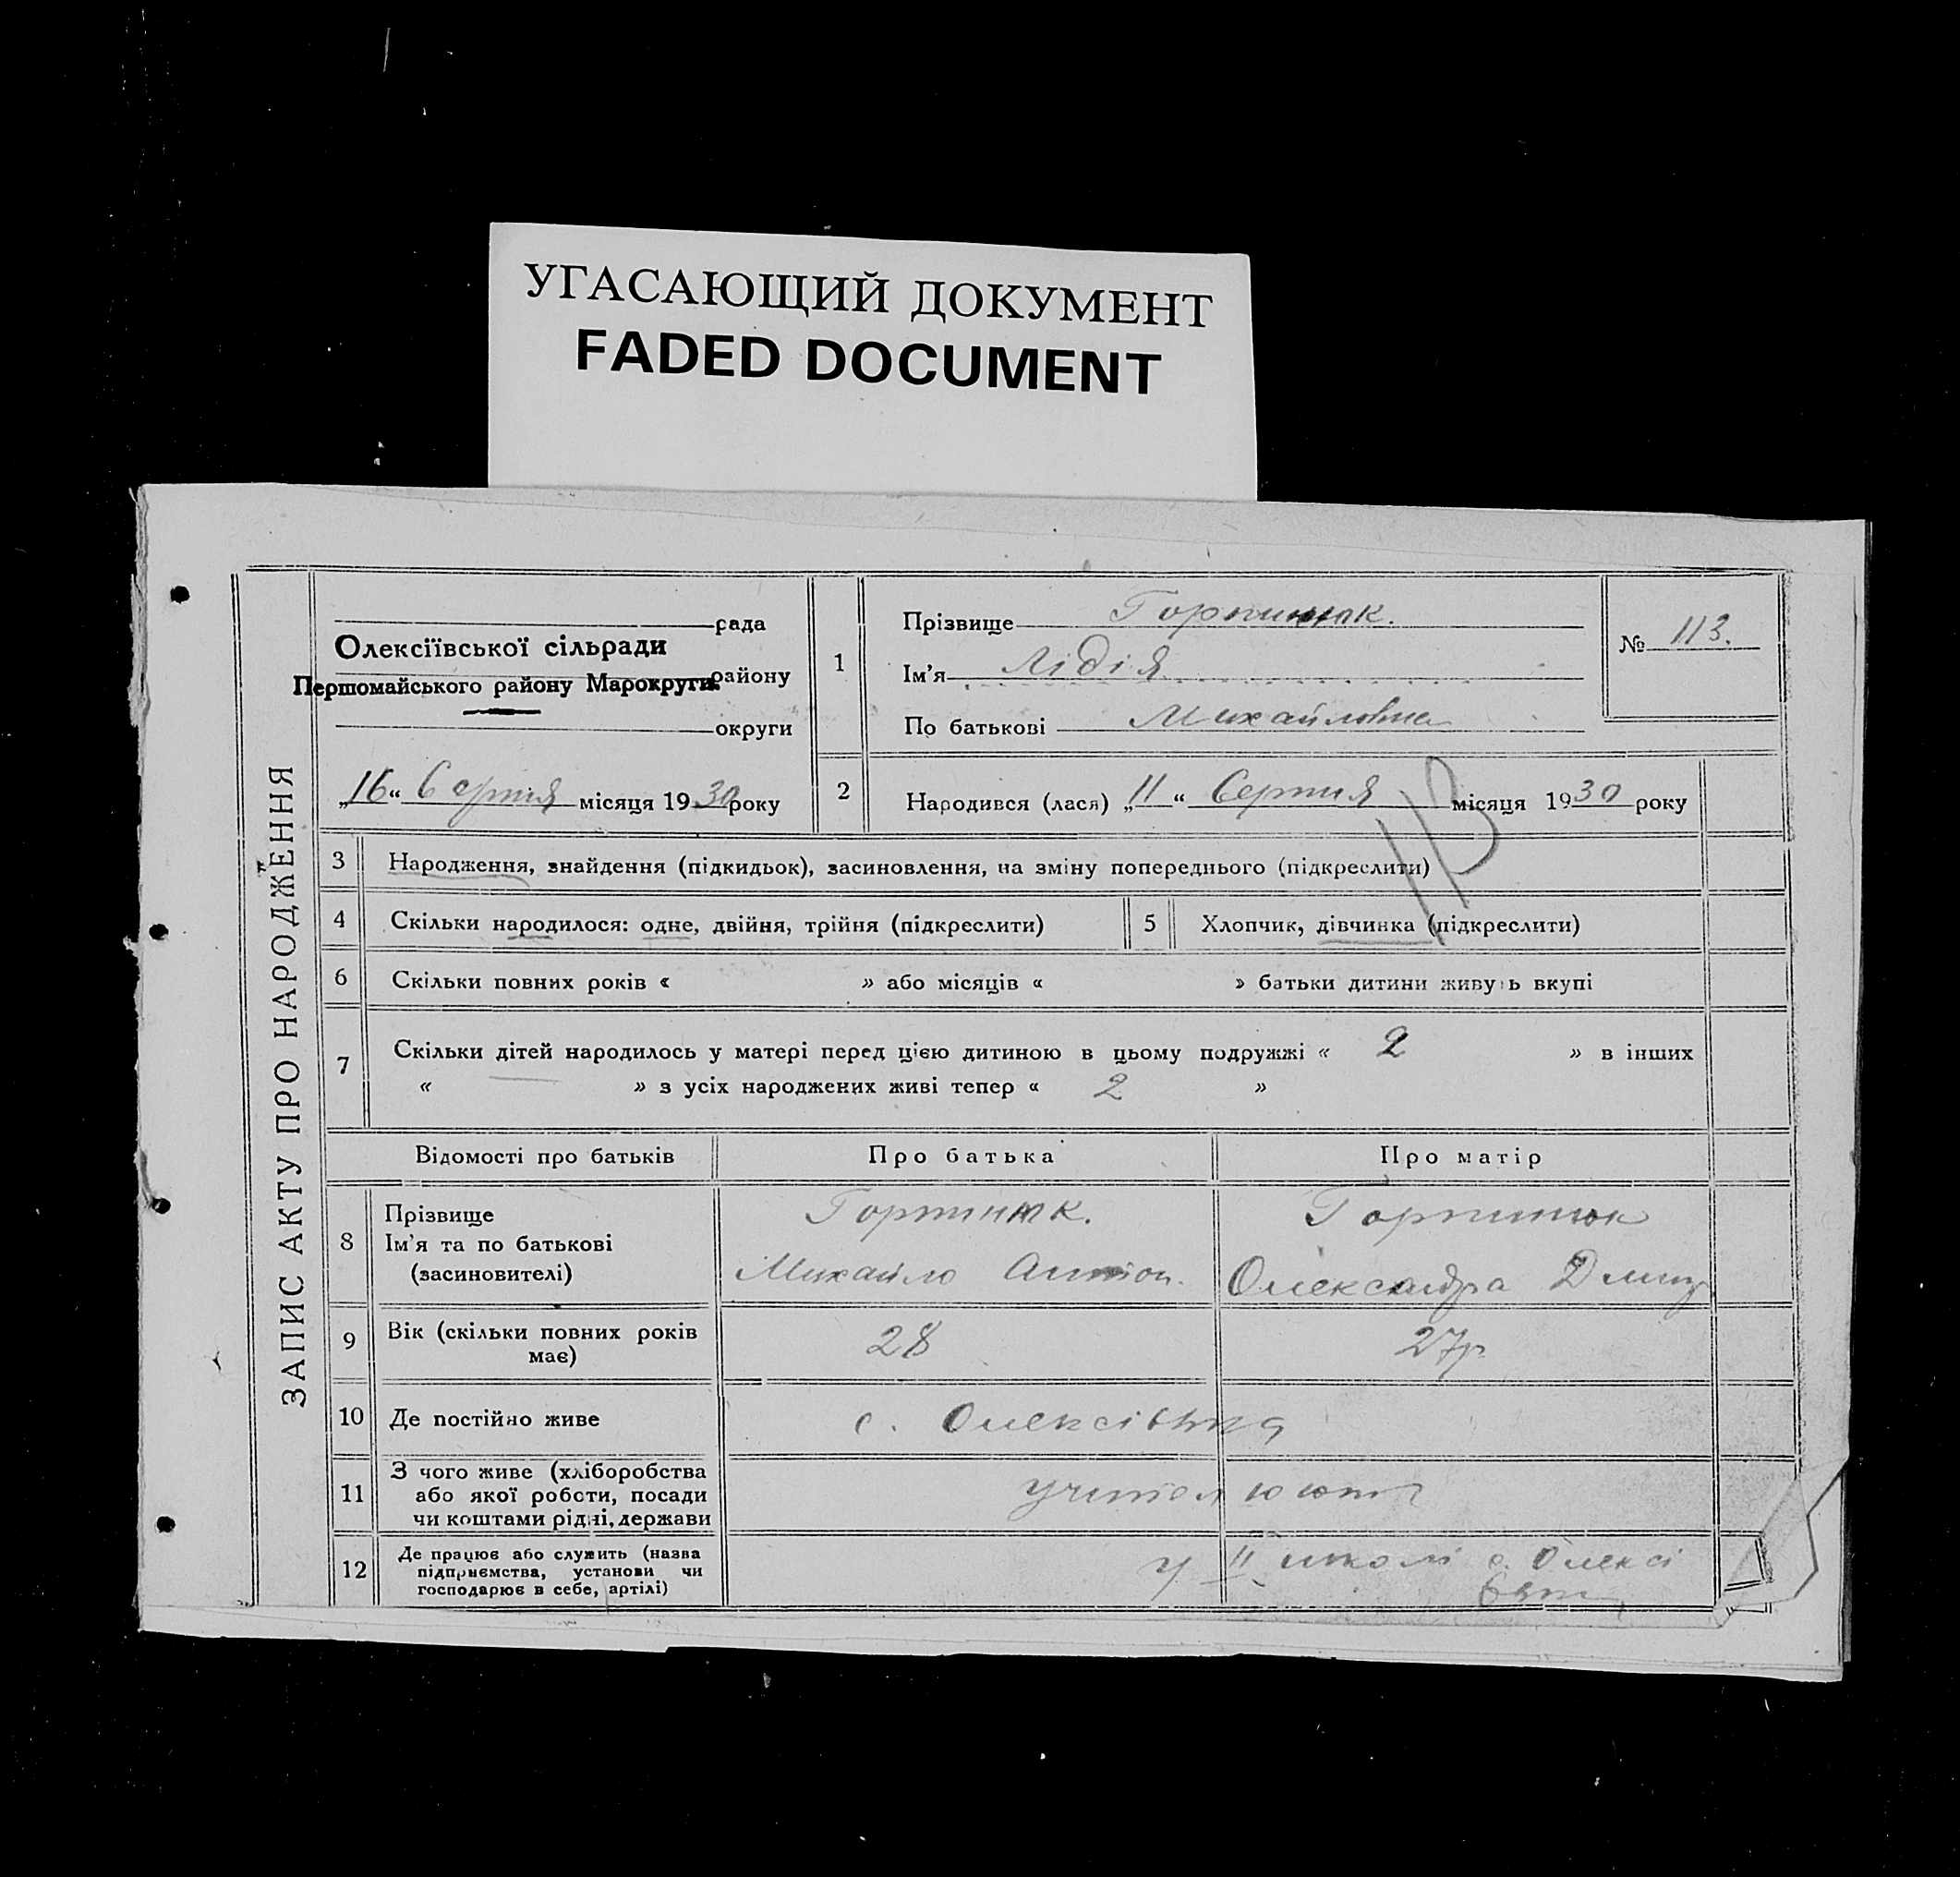 УГАСАЮЩИЙ ДОКУМЕНТ
FADED DOCUMENT
ЗАПИС АКТУ ПРО НАРОДЖЕННЯ
рада
Олексіївської сільради
району
Першомайського району Марокруги.
округи
„16“ Серпня місяця 1930 року
1
Прізвище Горпинюк.
Ім'я Лідія
По батькові Михайловна
№ 113.
2
Народився (лася) „11“ Серпня місяця 1930 року
3 Народження, знайдення (підкидьок), засиновлення, на зміну попереднього (підкреслити)
4 Скільки народилося: одне, двійня, трійня (підкреслити) 5 Хлопчик, дівчинка (підкреслити)
6 Скільки повних років « » або місяців « » батьки дитини живуть вкупі
7 Скільки дітей народилось у матері перед цією дитиною в цьому подружжі « 2 » в інших
« — » з усіх народжених живі тепер « 2 »
Відомості про батьків Про батька Про матір
8 Прізвище Горпинюк. Горпинюк
Ім'я та по батькові Михайло Антон. Олександра Дмитр
(засиновителі)
9 Вік (скільки повних років 28 27р
має)
10 Де постійно живе с. Олексіївка
11 З чого живе (хліборобства
або якої роботи, посади учителюють
чи коштами рідні, держави
12 Де працює або служить (назва у II школі с. Олексі
підприємства, установи чи ївки
господарює в себе, артілі)